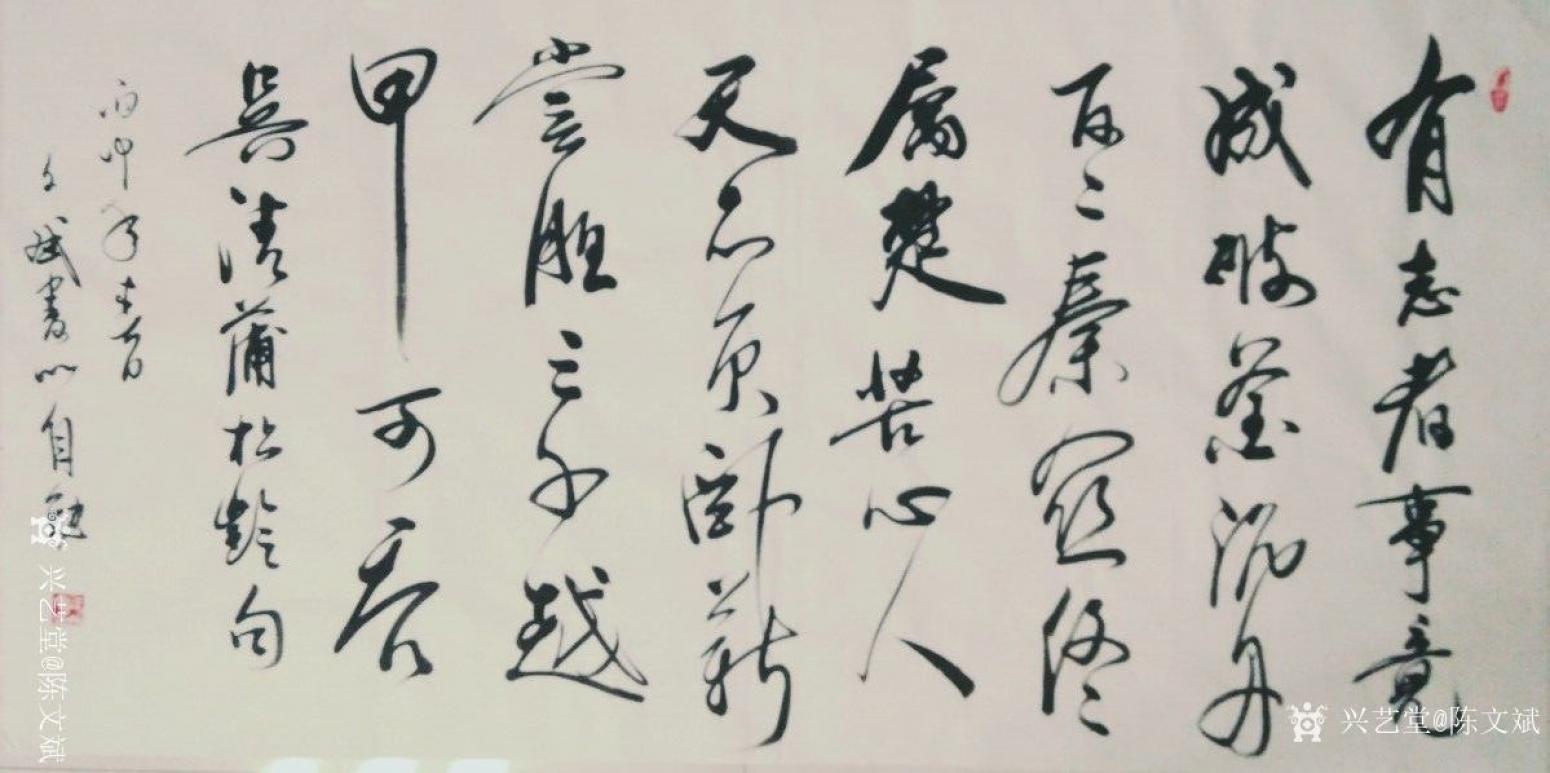 有志者事竟
成破釜沉舟
百二秦關终
属楚苦心人
天不负卧薪
尝胆三千越
甲可吞
吴清蒲松齡句
丙申年
文斌書以自勉
兴艺堂@陈文斌
兴艺堂@陈文斌